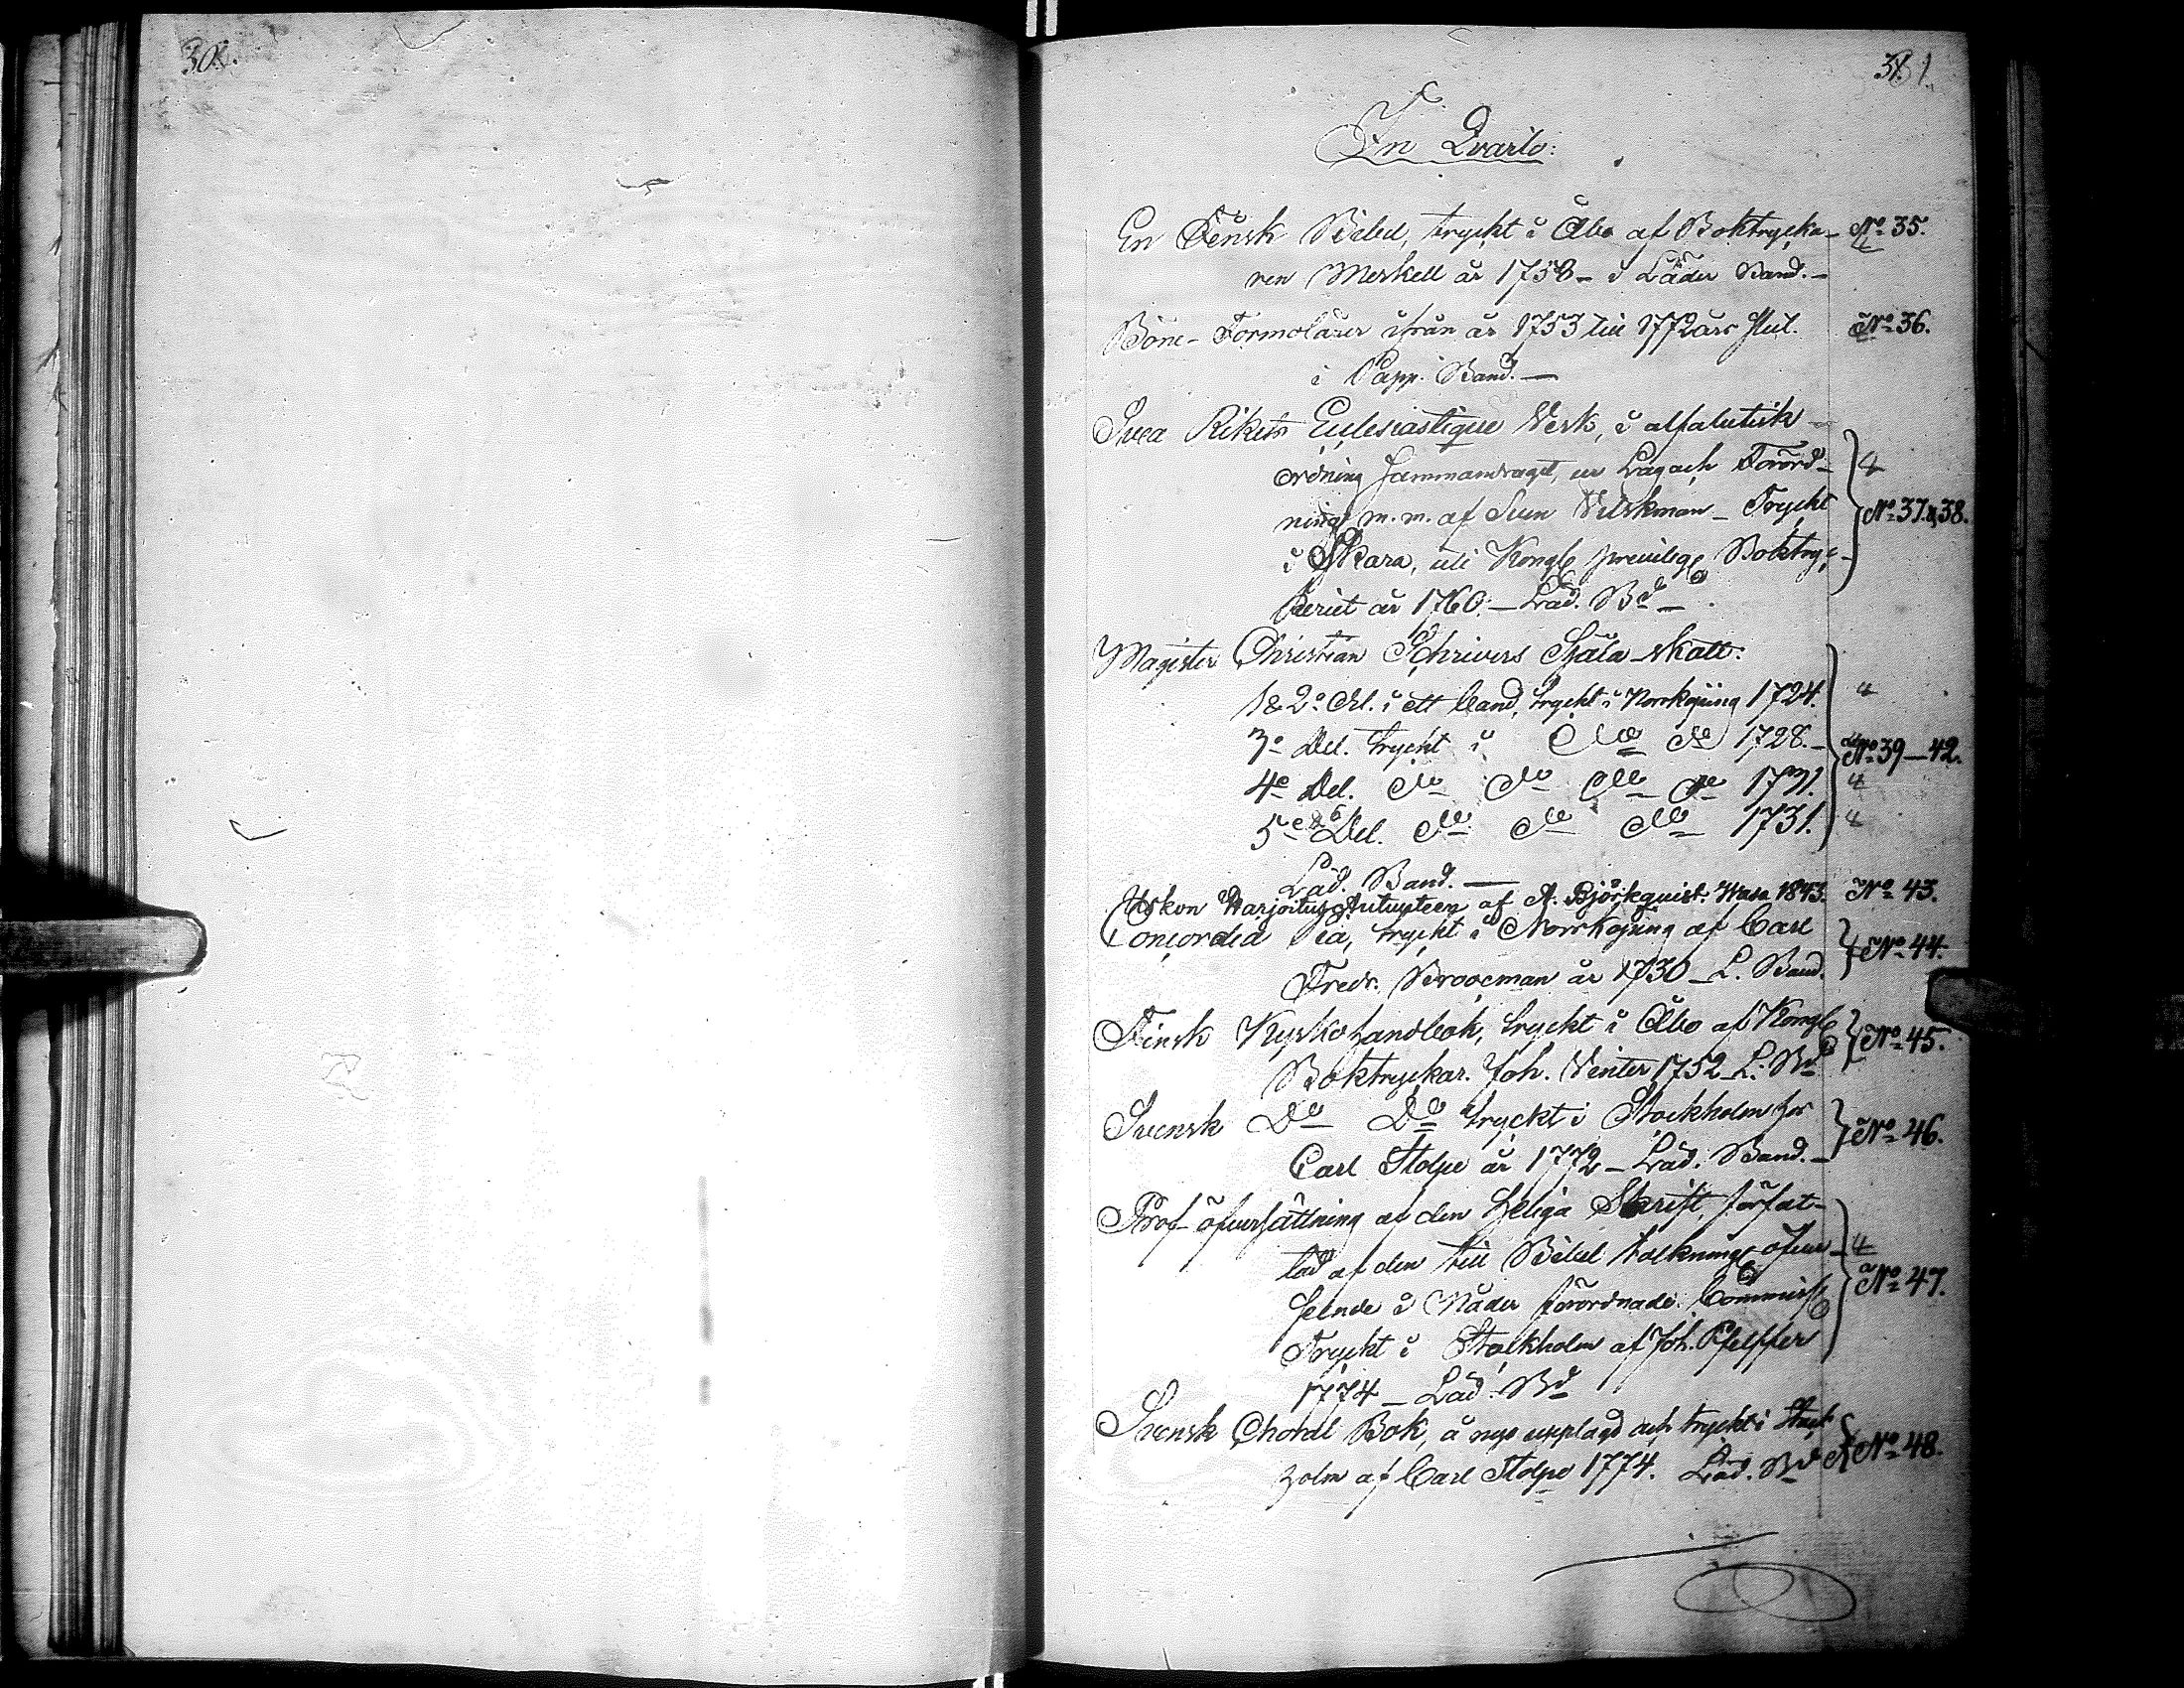 30.
31.
In Qvarto:
En Finsk Bibel, tryckt i Åbo af Boktrycka- No 35.
ren Merkell år 1758 – i Läder Band. –
Böne-Formolärer ifrån år 1753 till 1772 års slut. No 36.
i Papp. Band. —
Svea Rikets Ecclesiastique Verk, i alfabetisk
ordning sammandraget, ur Lag och Förord-
ningr m. m. af Sven Vilskman – Tryckt No 37. & 38.
i Skara, uti Kongl. privileg. Boktryc-
keriet år 1760. – Läd. Bd –
Magister Christian Schrivers Själa-skatt:
1 & 2e del. i ett band, tryckt i Norrköping 1724.
3e Del. tryckt i do do 1728. – No 39–42.
4e Del. do do do do 1731.
5e & 6 Del. do do do 1731.
Läd. Band. —
Uskon Harjoitus Autuuteen af A. Björkquist. Wasa 1843. No 43.
Concordia Pia, tryckt i Norrköping af Carl
Fredr. Broocman år 1730 – L. Band. No 44.
Finsk Kyrkohandbok, tryckt i Åbo af Kongl. No 45.
Boktryckar. Joh. Venter 1752 – L. Bd
Svensk Do Do tryckt i Stockholm hos
Carl Stolpe år 1772 – Läd. Band. – No 46.
Prof-öfversättning af den Heliga Skrift, förfat-
tad af den till Bibel tolkningr öfver-
seende i Nåder förordnade Commiss. No 47.
Tryckt i Stockholm af Joh. Pfeiffer
1774 – Läd. Bd
Svensk Choral Bok, å nyo upplagd och tryckt i Stock-
holm af Carl Stolpe 1774. Läd. Bd No 48.